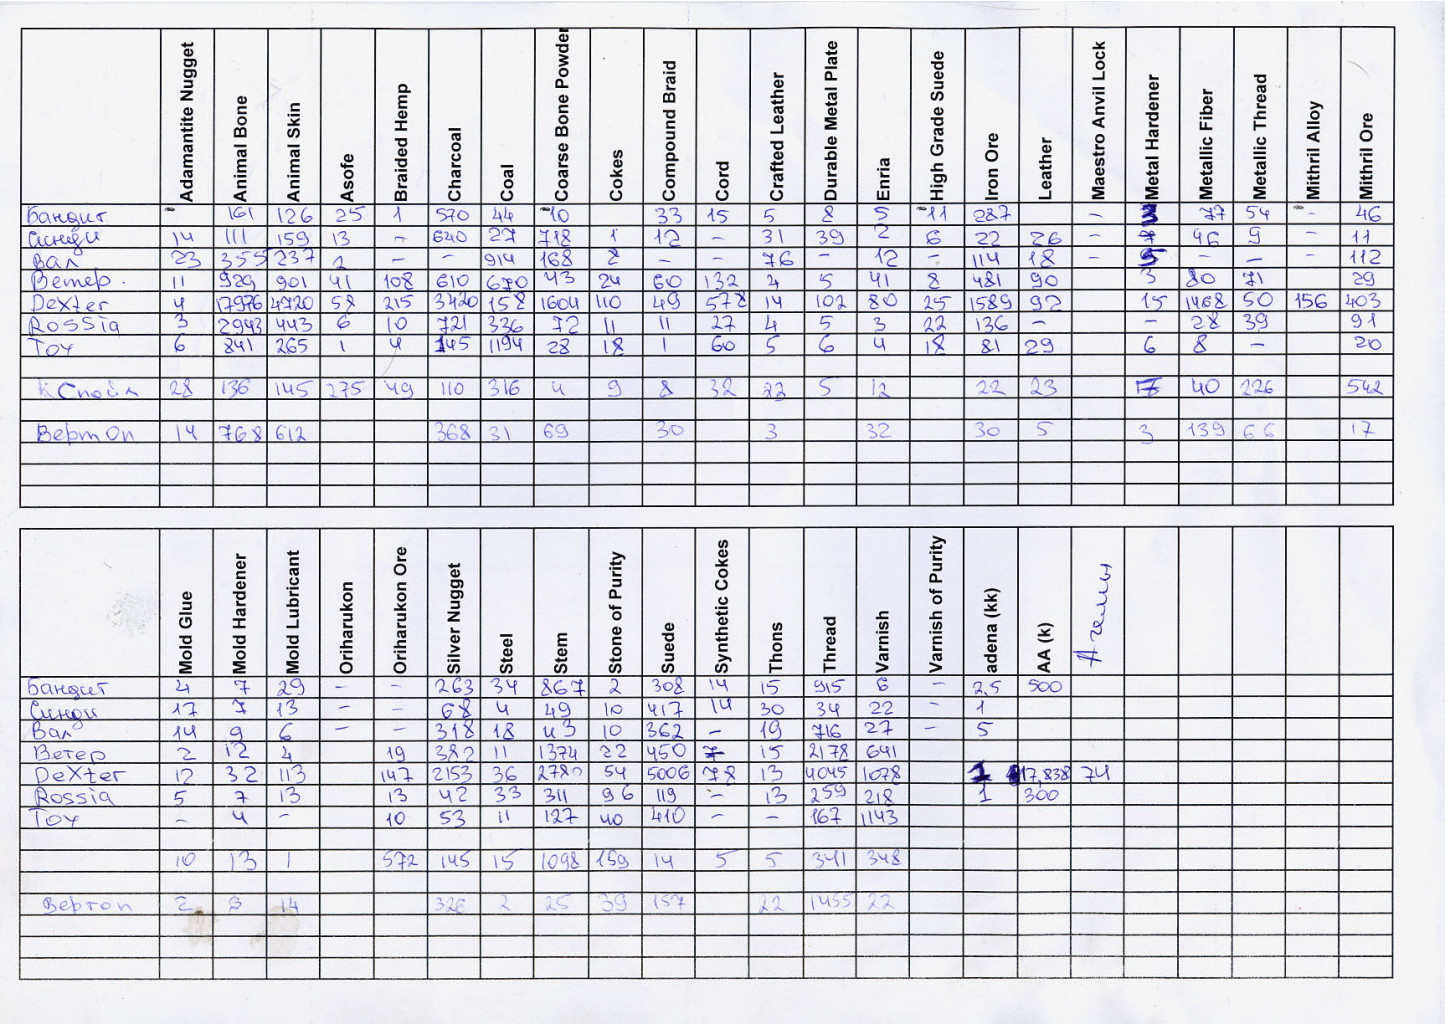 Adamantite Nugget Animal Bone Animal Skin Asofe Braided Hemp Charcoal Coal Coarse Bone Powder Cokes Compound Braid Cord Crafted Leather Durable Metal Plate Enria High Grade Suede Iron Ore Leather Maestro Anvil Lock Metal Hardener Metallic Fiber Metallic Thread Mithril Alloy Mithril Ore
Бандит - 161 126 25 1 570 44 10 33 15 5 8 5 11 287 - 77 54 - 46
Синди 14 111 159 13 - 640 27 718 1 12 - 31 39 2 6 22 26 - 7 46 9 - 11
Вал 23 355 237 2 - - 914 168 2 - - 76 - 12 - 114 18 - - - - 112
Ветер. 11 929 901 41 108 610 670 43 24 60 132 4 5 41 8 481 90 3 80 71 29
Dexter 4 17976 4720 58 215 3420 158 1604 110 49 578 14 102 80 25 1589 92 15 1468 50 156 403
Rossia 3 2943 443 6 10 721 336 72 11 11 27 4 5 3 22 136 - - 28 39 91
Toy 6 841 265 1 4 145 1194 28 18 1 60 5 6 4 18 81 29 6 8 - 20
КСпойл 28 136 145 275 49 110 316 4 9 8 32 23 5 12 22 23 7 40 226 542
Вертоп 14 768 612 368 31 69 30 3 32 30 5 3 139 66 17
Mold Glue Mold Hardener Mold Lubricant Oriharukon Oriharukon Ore Silver Nugget Steel Stem Stone of Purity Suede Synthetic Cokes Thons Thread Varnish Varnish of Purity adena (kk) AA (k)
Бандит 4 7 29 - - 263 34 867 2 308 14 15 915 6 - 2,5 500
Синди 17 7 13 - - 68 4 49 10 417 14 30 34 22 - 1
Вал 14 9 6 - - 318 18 43 10 362 - 19 716 27 - 5
Ветер 2 12 4 19 382 11 1374 22 450 7 15 2178 641
Dexter 12 32 113 147 2153 36 2780 54 5006 78 13 4045 1078 1 17,838 74
Rossia 5 7 13 13 42 33 311 96 119 - 13 259 218 1 300
Toy - 4 - 10 53 11 127 40 410 - - 167 1143
10 13 1 572 145 15 1098 159 14 5 5 341 348
Вертоп 2 14 326 2 25 39 157 22 1455 22